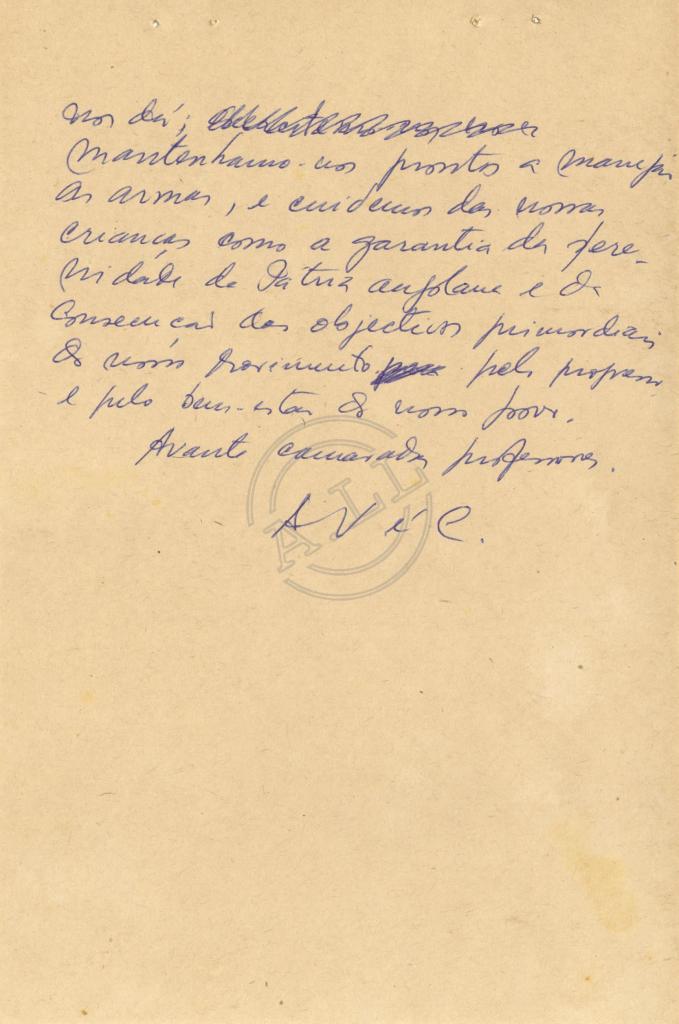 nos dá;
mantenhamo-nos prontos a manejar
as armas, e cuidemos das nossas
crianças como a garantia da pere-
nidade da Pátria angolana e da
consecução dos objectivos primordiais
do nosso Movimento pelo progresso
e pelo bem-estar do nosso povo.
Avante camaradas professores.
A V é C.
A.LL